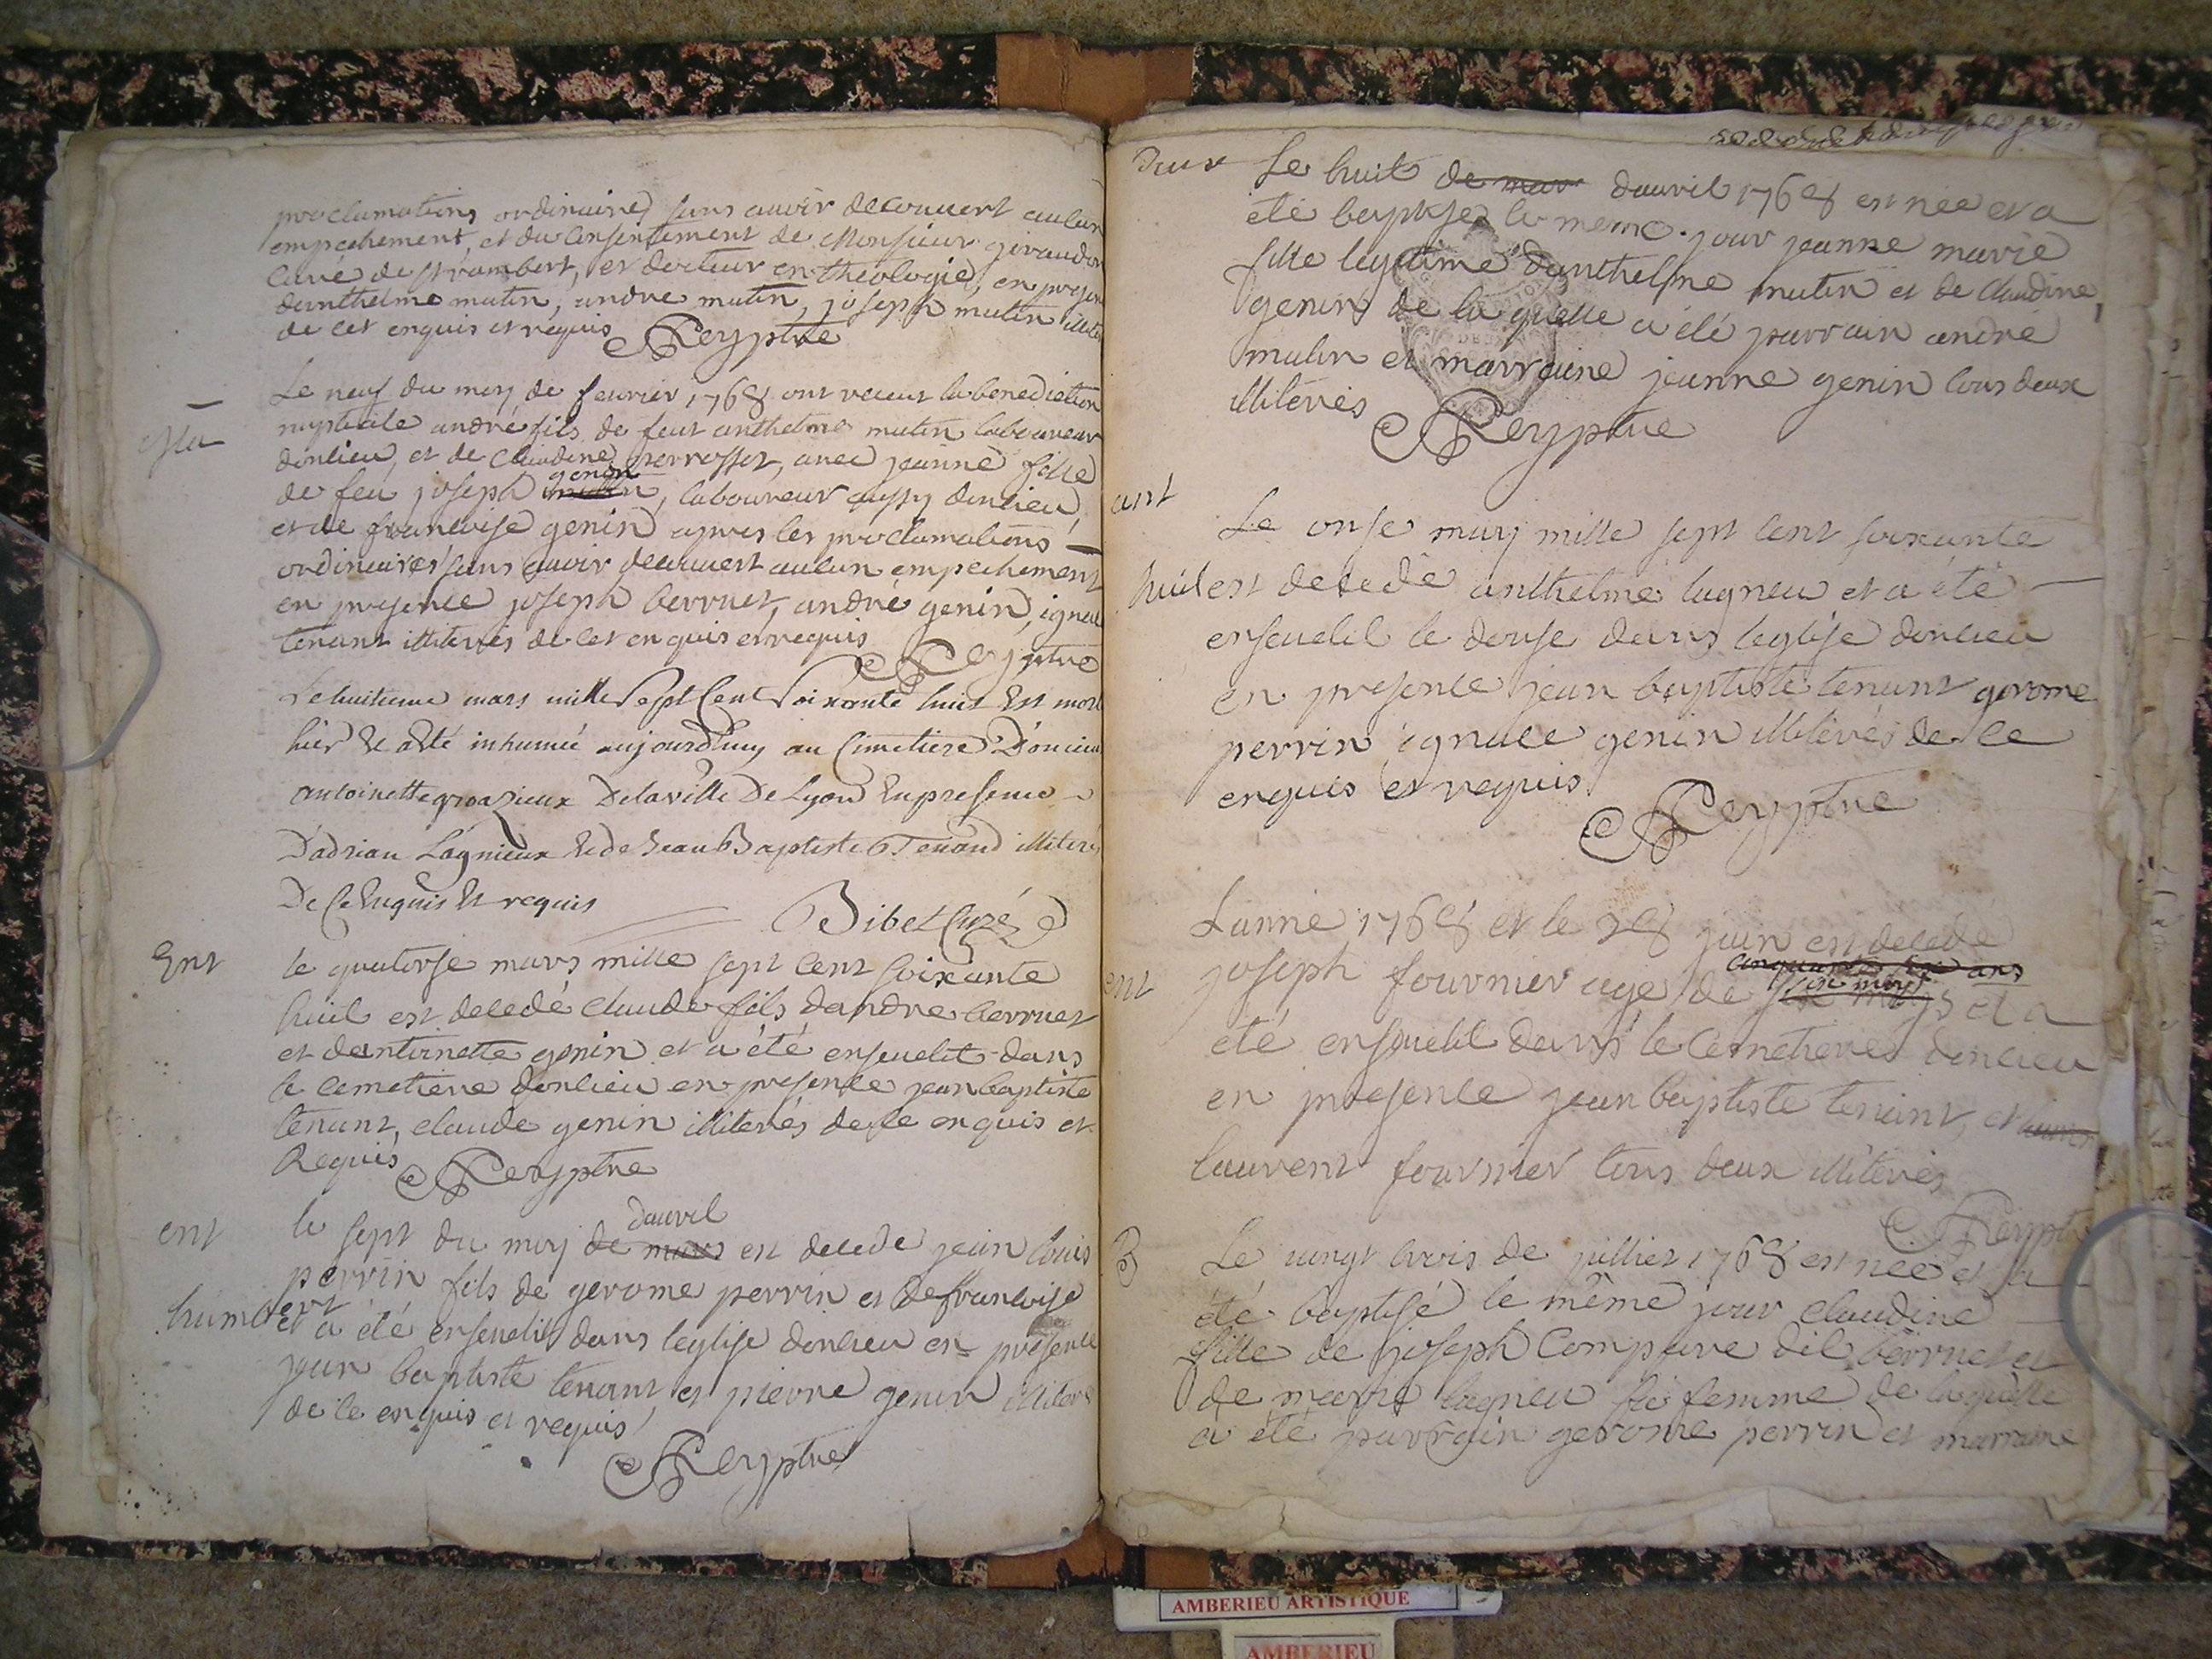 proclamations ordinaires sans avoir decouvert aucun
empechement, et du consentement de Monsieur giraudon
curé de St rambert, et docteur en theologie, en presen
danthelme mutin, andre mutin, joseph mutin illite
de cet enquis et requis Reyptre
Le neuf du moy de fevrier 1768 ont receut la benediction
nuptiale andré fils de feut anthelme mutin laboureur
donlieu, et de Claudine perrosset, avec jeanne fille
de feu joseph mutin genin, laboureur aussy donlieu,
et de francoise genin apres les proclamations
ordinaires sans avoir decouvert aucun empechement
en presence joseph berruet, andré genin, ignac
tenant illiterés de cet enquis et requis
Reyptre
Le huitieme mars mille Sept Cent Soixante huit Est mort
hier Et a Eté inhumée aujourdhuy au Cimetiere D'oncieu
antoinette Delaville De Lyon En presence
D'adrian Lagnieux Et de Jean Baptiste Tenand illiteré
De Ce Enquis Et requis
Bibet Curé
Ent le quatorse mars mille sept cent soixante
huit est decedé claude fils dandre berruet
et dantoinette genin et a été ensevelit dans
le cemetiere donlieu en presence jean baptiste
tenant, claude genin illiterés de ce enquis et
Requis Reyptre
ent le sept du moy de mars davril est decede jean louis
perrin fils de gerome perrin et de francoise
humbert et a été ensevelit dans leglise donlieu en presence
jean baptiste tenant et pierre genin illiteré
de ce enquis et requis
Reyptre
Le huit de mar davril 1768 est née et a
été baptisée le meme jour jeanne marie
fille legitime danthelme mutin et de claudine
genin de la quelle a été parrain andré
mutin et marraine jeanne genin tous deux
illiterés
Reyptre
ent
Le onse may mille sept cent soixante
huit est decedé anthelme lagneu et a été
ensevelit le douse dans leglise donlieu
en presence jean baptiste tenant gerome
perrin ignace genin illiterés de ce
enquis et requis
Reyptre
Lanné 1768 et le 28 juin est decedé
ent joseph fournier agé de six moys cinquante six ans six moys et a
été ensevelit dans le Cemetiere donlieu
en presence jean baptiste tenant, et
laurent fournier tous deux illiterés
Reyptre
B Le vingt trois de juilliet 1768 est née et a
été baptisé le même jour claudine
fille de joseph Compare dit berruet et
de marie lagneu sa femme de la quelle
a été parrain gerome perrin et marraine
AMBERIEU ARTISTIQUE
AMBERIEU